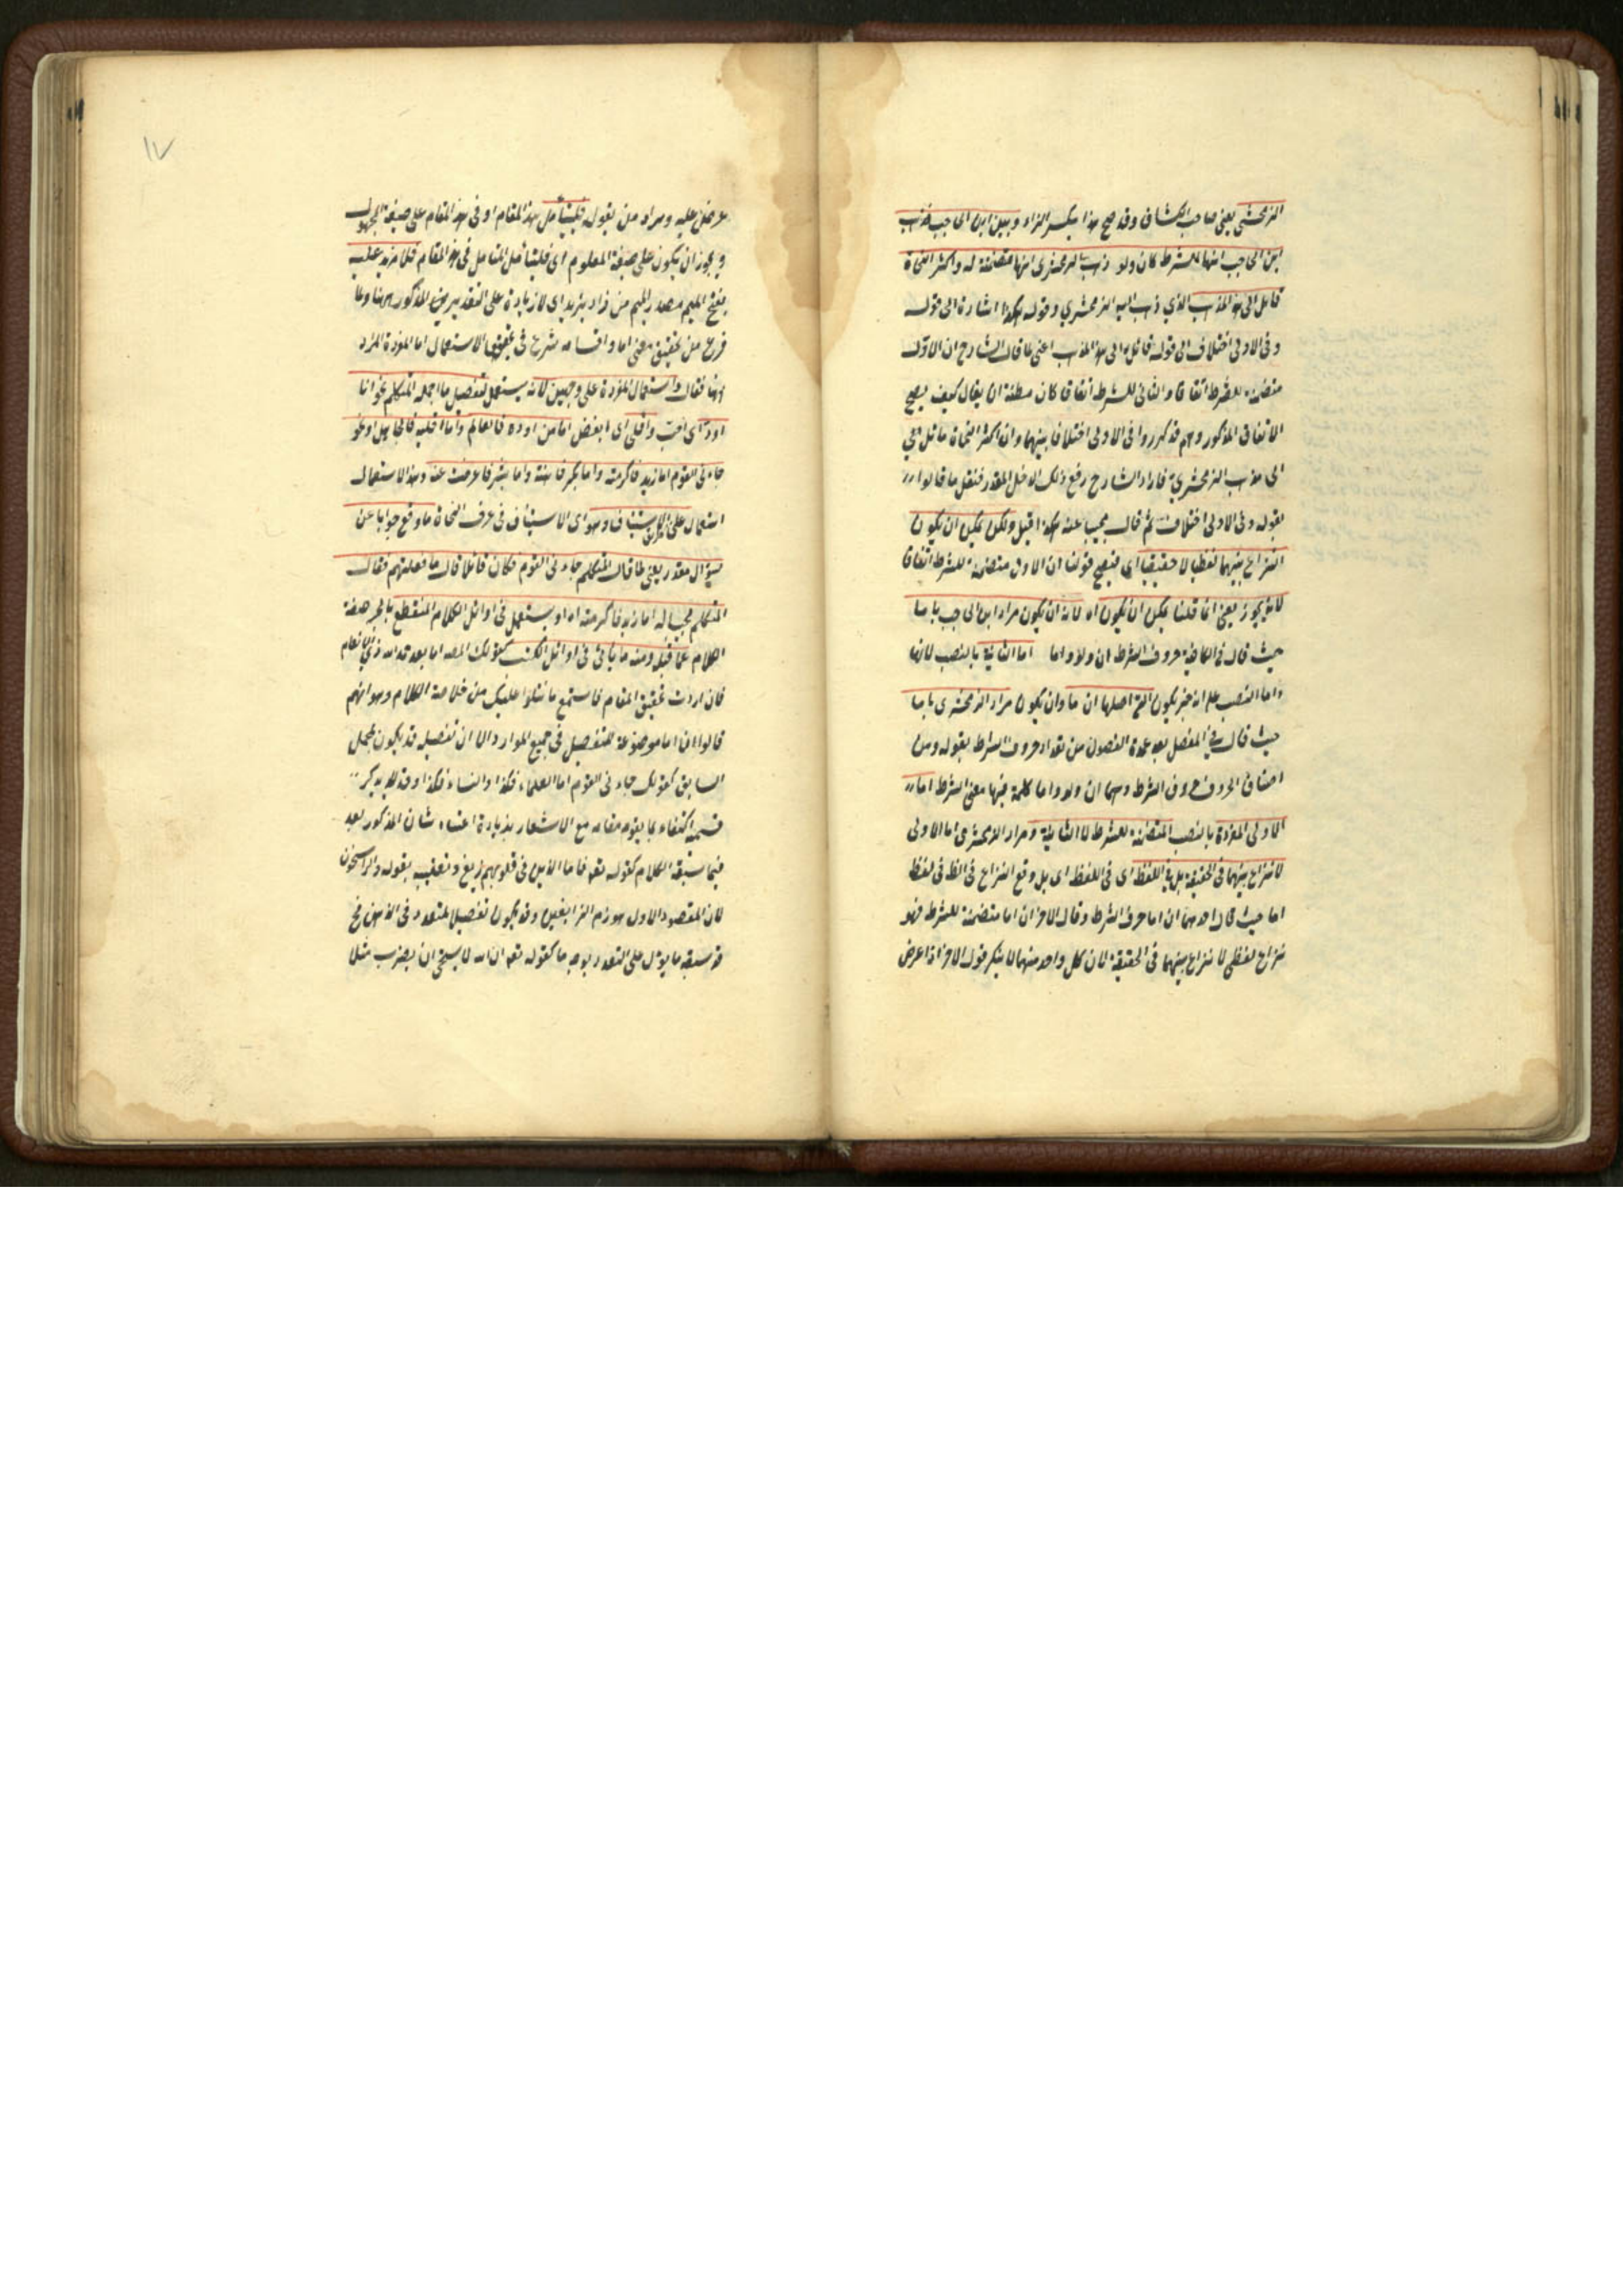 الزمخشري يعني صاحب الكشاف وقد صح هذا بكسر الزاء وبين ابن الحاجب فذهب
ابن الحاجب انها للشرط كان ولو ذهب الزمخشري انها متضمنة له واكثر النحاة
قائل الى هذا المذهب الذي ذهب اليه الزمخشري وقوله هكذا اشارة الى قوله
وفي الاولى اختلاف الى قوله قائل الى هذا المذهب اعني ما قال الشارح ان الاول
متضمنة للشرط اتفاقا والثاني للشرط اتفاقا كان مظنة ان يقال كيف يصح
الاتفاق المذكور وهم قد كرروا في الاولى اختلافا بينهما وان اكثر النحاة مائل
الى مذهب الزمخشري فاراد الشارح رفع ذلك الدخل المقدر فنقل ما قالوا
بقوله وفي الاولى اختلاف ثم قال مجيبا عنه هكذا قيل ولكن يمكن ان يكون
النزاع بينهما لفظيا لا حقيقيا اي فيصح قولنا ان الاولى متضمنة للشرط اتفاقا
لانه يجوز يعني انما قلنا يمكن ان يكون اه لانه ان يكون مراد ابن الحاجب باما
حيث قال في الكافية حروف الشرط ان ولو واما اما الثانية بالنصب لانها
واما النصب على انه خبر يكون التي اصلها ان ما وان يكون مراد الزمخشري باما
حيث قال في المفصل بعد عدة الفصول من تعداد حروف الشرط بقوله ومن
اصناف الحروف حروف الشرط وهما ان ولو واما كلمة فيها معنى الشرط اما
الاولى المفردة بالنصب المتضمنة للشرط لا الثانية ومراد الزمخشري اما الاولى
لا نزاع بينهما في الحقيقة بل في اللفظ اى في اللفظ اى بل وقع النزاع في الظ في لفظ
اما حيث قال احدهما ان اما حرف الشرط وقال الاخر ان اما متضمنة للشرط فهو
نزاع لفظي لا نزاع بينهما في الحقيقة لان كل واحد منهما لا ينكر قول الاخر اذا عرض
١٧
عرض عليه ومراد من بقوله فليتأمل هذا المقام او في هذا المقام على صيغة المجهول
ويجوز ان يكون على صيغة المعلوم اى فليتأمل المتامل في هذا المقام فلا مزيد عليه
بفتح الميم مصدر الميم من زاد يزيد اى لا زيادة على التقدير المذكور ههنا ولما
فرغ من تحقيق معنى اما واقسامه شرع في تحقيق الاستعمال اما المفردة المراد
فقال واستعمال المفردة على وجهين لانه يستعمل لتفصيل ما اجمله المتكلم نحو انا
اود اى احب واقلى اى ابغض اما من اوده فالعالم واما اقليه فالجاهل او نحو
جاءني القوم اما زيد فاكرمته واما بكر فاهنته واما بشر فاعرضت عنه وهذا الاستعمال
استعمال على طريق الاستيناف وهو اى الاستيناف في عرف النحاة ما وقع جوابا عن
سؤال مقدر يعني لما قال المتكلم جاءني القوم فكان قائلا قال ما فعلتهم فقال
المتكلم مجيبا له اما زيد فاكرمته اه او يستعمل في اوائل الكلام المنقطع بالجر صفة
الكلام عما قبله ومنه ما يأتي في اوائل الكتب كقولك المصه اما بعد حمد الله ذي الانعام
فان اردت تحقيق المقام فاستمع ما نتلوا عليك من خلاصة الكلام وهو انهم
قالوا ان اما موضوعة للتفصيل في جميع الموارد الا ان تفصيله قد يكون لمجمل
السابق كقولك جاءني القوم اما العلماء فكذا والنساء فكذا وقد لا يذكر
قسيمه اكتفاء بما يقوم مقامه مع الاشعار بزيادة اعتناء شان المذكور بعد
فيما سبقه الكلام كقوله تعه فاما الذين في قلوبهم زيغ وتعقيبه بقوله والراسخون
لان المقصود الاول هو ذم الزايغين وقد يكون تفصيلا لمتعدد في الذهن نح
قد سبقه ما يؤل على التعدد بوجه ما كقوله تعه ان الله لا يستحي ان يضرب مثلا